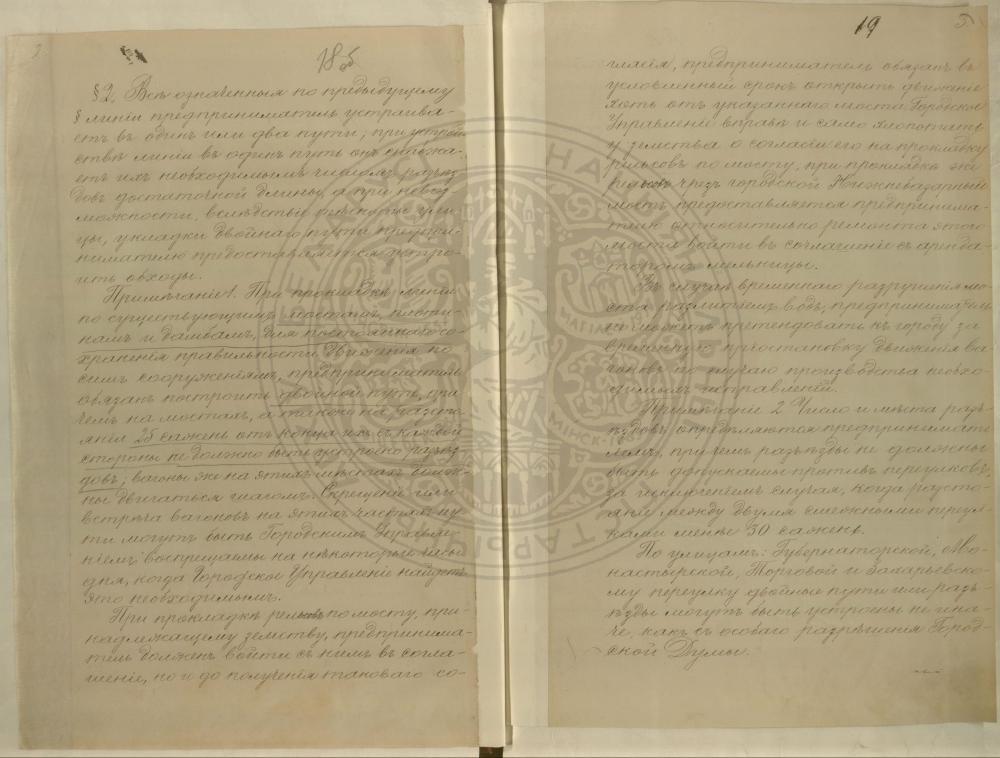 18 об
§ 2. Всѣ означенныя по предыдущему
§ линіи предприниматель устраива-
етъ въ одинъ или два пути; при устрой-
ствѣ линіи въ одинъ путь онъ снабжа-
етъ ихъ необходимымъ числомъ разъѣз-
довъ достаточной длины, а при невоз-
можности, вслѣдствіе узкости ули-
цы, укладки двойнаго пути предпри-
нимателю предоставляется устро-
ить обходы.
Примѣчаніе 1. При прокладкѣ линіи
по существующимъ мостамъ, мости-
камъ и дамбамъ, для постояннаго со-
храненія правильности движенія по
симъ сооруженіямъ, предприниматель
обязанъ построить двойной путь, при
чемъ на мостахъ, а также на разсто-
яніи 25 сажень отъ конца ихъ съ каждой
стороны не должно быть устроено разъѣз-
довъ; вагоны же на этихъ мѣстахъ долж-
ны двигаться шагомъ. Скрещеніе или
встрѣча вагоновъ на этихъ частяхъ пу-
ти могутъ быть Городскимъ Управле-
ніемъ воспрещаемы на нѣкоторые часы
дня, когда Городское Управленіе найдетъ
это необходимымъ.
При прокладкѣ рельсовъ по мосту, при-
надлежащему земству, предпринима-
тель долженъ войти съ нимъ въ согла-
шеніе, но и до полученія таковаго со-
19 5
гласія, предприниматель обязанъ въ
условленный срокъ открыть движеніе
хоть отъ указаннаго моста. Городское
Управленіе вправѣ и само хлопотать
у земства о согласіи его на прокладку
рельсовъ по мосту, при прокладкѣ же
рельсовъ чрезъ городской Нижнебазарный
мостъ предоставляется предпринима-
телю относительно ремонта этого
моста войти въ соглашеніе съ аренда-
торомъ мельницы.
Въ случаѣ временнаго разрушенія мо-
ста разлитіемъ водъ, предприниматель
не можетъ претендовать къ городу за
временную пріостановку движенія ва-
гоновъ по случаю производства необхо-
димыхъ исправленій.
Примѣчаніе 2. Число и мѣста разъ-
ѣздовъ опредѣляются предпринимате-
лемъ, причемъ разъѣзды не должны
быть допускаемы противъ переулковъ,
за исключеніемъ случая, когда разсто-
яніе между двумя смежными переул-
ками менѣе 30 сажень.
По улицамъ: Губернаторской, Мо-
настырской, Торговой и Захарьевско-
му переулку двойные пути или разъ-
ѣзды могутъ быть устроены не ина-
че, какъ съ особаго разрѣшенія Город-
ской Думы.